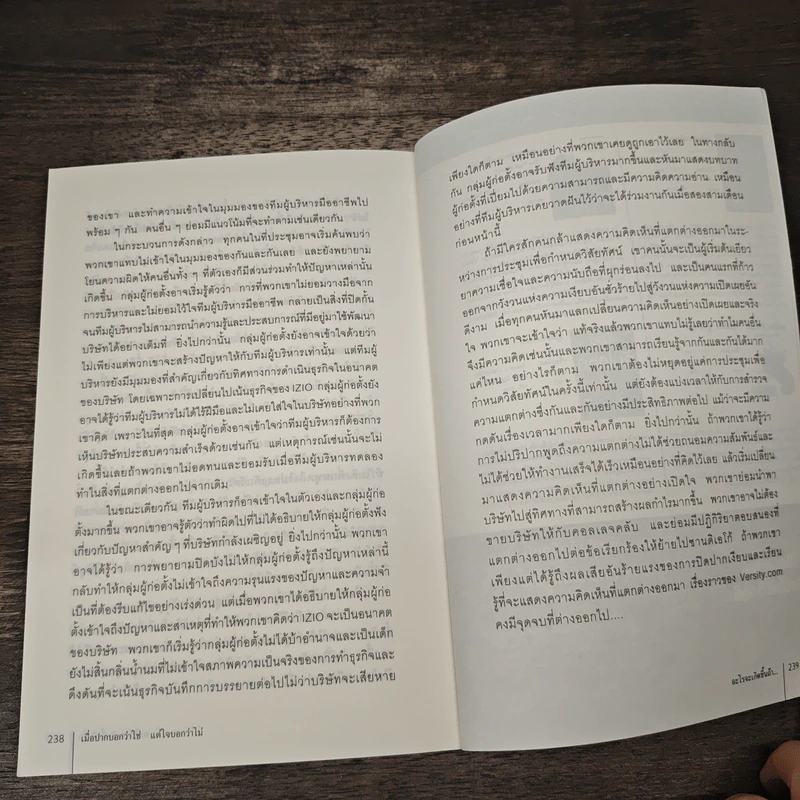 ของเขา และทำความเข้าใจในมุมมองของทีมผู้บริหารมืออาชีพไป
พร้อม ๆ กัน คนอื่น ๆ ย่อมมีแนวโน้มที่จะทำตามเช่นเดียวกัน
ในกระบวนการดังกล่าว ทุกคนในที่ประชุมอาจเริ่มค้นพบว่า
พวกเขาแทบไม่เข้าใจในมุมมองของกันและกันเลย และยังพยายาม
โยนความผิดให้คนอื่นทั้ง ๆ ที่ตัวเองก็มีส่วนร่วมทำให้ปัญหาเหล่านั้น
เกิดขึ้น กลุ่มผู้ก่อตั้งอาจเริ่มรู้ตัวว่า การที่พวกเขาไม่ยอมวางมือจาก
การบริหารและไม่ยอมไว้ใจทีมผู้บริหารมืออาชีพ กลายเป็นสิ่งที่ปิดกั้น
จนทีมผู้บริหารไม่สามารถนำความรู้และประสบการณ์ที่มีอยู่มาใช้พัฒนา
บริษัทได้อย่างเต็มที่ ยิ่งไปกว่านั้น กลุ่มผู้ก่อตั้งยังอาจเข้าใจได้ด้วยว่า
ไม่เพียงแต่พวกเขาจะสร้างปัญหาให้กับทีมผู้บริหารเท่านั้น แต่ทีมผู้
บริหารยังมีมุมมองที่สำคัญเกี่ยวกับทิศทางการดำเนินธุรกิจในอนาคต
ของบริษัท โดยเฉพาะการเปลี่ยนไปเน้นธุรกิจของ IZIO กลุ่มผู้ก่อตั้งยัง
อาจได้รู้ว่าทีมผู้บริหารไม่ได้ไร้ฝีมือและไม่เคยใส่ใจในบริษัทอย่างที่พวก
เขาคิด เพราะในที่สุด กลุ่มผู้ก่อตั้งอาจเข้าใจว่าทีมผู้บริหารก็ต้องการ
เห็นบริษัทประสบความสำเร็จด้วยเช่นกัน แต่เหตุการณ์เช่นนั้นจะไม่
เกิดขึ้นเลยถ้าพวกเขาไม่อดทนและยอมรับเมื่อทีมผู้บริหารทดลอง
ทำในสิ่งที่แตกต่างออกไปจากเดิม
ในขณะเดียวกัน ทีมผู้บริหารก็อาจเข้าใจในตัวเองและกลุ่มผู้ก่อ
ตั้งมากขึ้น พวกเขาอาจรู้ตัวว่าทำผิดไปที่ไม่ได้อธิบายให้กลุ่มผู้ก่อตั้งฟัง
เกี่ยวกับปัญหาสำคัญ ๆ ที่บริษัทกำลังเผชิญอยู่ ยิ่งไปกว่านั้น พวกเขา
อาจได้รู้ว่า การพยายามปิดบังไม่ให้กลุ่มผู้ก่อตั้งรู้ถึงปัญหาเหล่านี้
กลับทำให้กลุ่มผู้ก่อตั้งไม่เข้าใจถึงความรุนแรงของปัญหาและความจำ
เป็นที่ต้องรีบแก้ไขอย่างเร่งด่วน แต่เมื่อพวกเขาได้อธิบายให้กลุ่มผู้ก่อ
ตั้งเข้าใจถึงปัญหาและสาเหตุที่ทำให้พวกเขาคิดว่า IZIO จะเป็นอนาคต
ของบริษัท พวกเขาก็เริ่มรู้ว่ากลุ่มผู้ก่อตั้งไม่ได้บ้าอำนาจและเป็นเด็ก
ยังไม่สิ้นกลิ่นน้ำนมที่ไม่เข้าใจสภาพความเป็นจริงของการทำธุรกิจและ
ดึงดันที่จะเน้นธุรกิจบันทึกการบรรยายต่อไปไม่ว่าบริษัทจะเสียหาย
238 เมื่อปากบอกว่าใช่ แต่ใจบอกว่าไม่
เพียงใดก็ตาม เหมือนอย่างที่พวกเขาเคยดูถูกเอาไว้เลย ในทางกลับ
กัน กลุ่มผู้ก่อตั้งอาจรับฟังทีมผู้บริหารมากขึ้นและหันมาแสดงบทบาท
ผู้ก่อตั้งที่เปี่ยมไปด้วยความสามารถและมีความคิดความอ่าน เหมือน
อย่างที่ทีมผู้บริหารเคยวาดฝันไว้ว่าจะได้ร่วมงานกันเมื่อสองสามเดือน
ก่อนหน้านี้
ถ้ามีใครสักคนกล้าแสดงความคิดเห็นที่แตกต่างออกมาในระ-
หว่างการประชุมเพื่อกำหนดวิสัยทัศน์ เขาคนนั้นจะเป็นผู้เริ่มต้นเยียว
ยาความเชื่อใจและความนับถือที่ผุกร่อนลงไป และเป็นคนแรกที่ก้าว
ออกจากวังวนแห่งความเงียบอันชั่วร้ายไปสู่วังวนแห่งความเปิดเผยอัน
ดีงาม เมื่อทุกคนหันมาแลกเปลี่ยนความคิดเห็นอย่างเปิดเผยและจริง
ใจ พวกเขาจะเข้าใจว่า แท้จริงแล้วพวกเขาแทบไม่รู้เลยว่าทำไมคนอื่น
จึงมีความคิดเช่นนั้นและพวกเขาสามารถเรียนรู้จากกันและกันได้มาก
แค่ไหน อย่างไรก็ตาม พวกเขาต้องไม่หยุดอยู่แค่การประชุมเพื่อ
กำหนดวิสัยทัศน์ในครั้งนี้เท่านั้น แต่ยังต้องแบ่งเวลาให้กับการสำรวจ
ความแตกต่างซึ่งกันและกันอย่างมีประสิทธิภาพต่อไป แม้ว่าจะมีความ
กดดันเรื่องเวลามากเพียงใดก็ตาม ยิ่งไปกว่านั้น ถ้าพวกเขาได้รู้ว่า
การไม่ปริปากพูดถึงความแตกต่างไม่ได้ช่วยถนอมความสัมพันธ์และ
ไม่ได้ช่วยให้ทำงานเสร็จได้เร็วเหมือนอย่างที่คิดไว้เลย แล้วเริ่มเปลี่ยน
มาแสดงความคิดเห็นที่แตกต่างอย่างเปิดใจ พวกเขาย่อมนำพา
บริษัทไปสู่ทิศทางที่สามารถสร้างผลกำไรมากขึ้น พวกเขาอาจไม่ต้อง
ขายบริษัทให้กับคอลเลจคลับ และย่อมมีปฏิกิริยาตอบสนองที่
แตกต่างออกไปต่อข้อเรียกร้องให้ย้ายไปซานดิเอโก้ ถ้าพวกเขา
เพียงแต่ได้รู้ถึงผลเสียอันร้ายแรงของการปิดปากเงียบและเรียน
รู้ที่จะแสดงความคิดเห็นที่แตกต่างออกมา เรื่องราวของ Versity.com
คงมีจุดจบที่ต่างออกไป....
อะไรจะเกิดขึ้นถ้า... 239